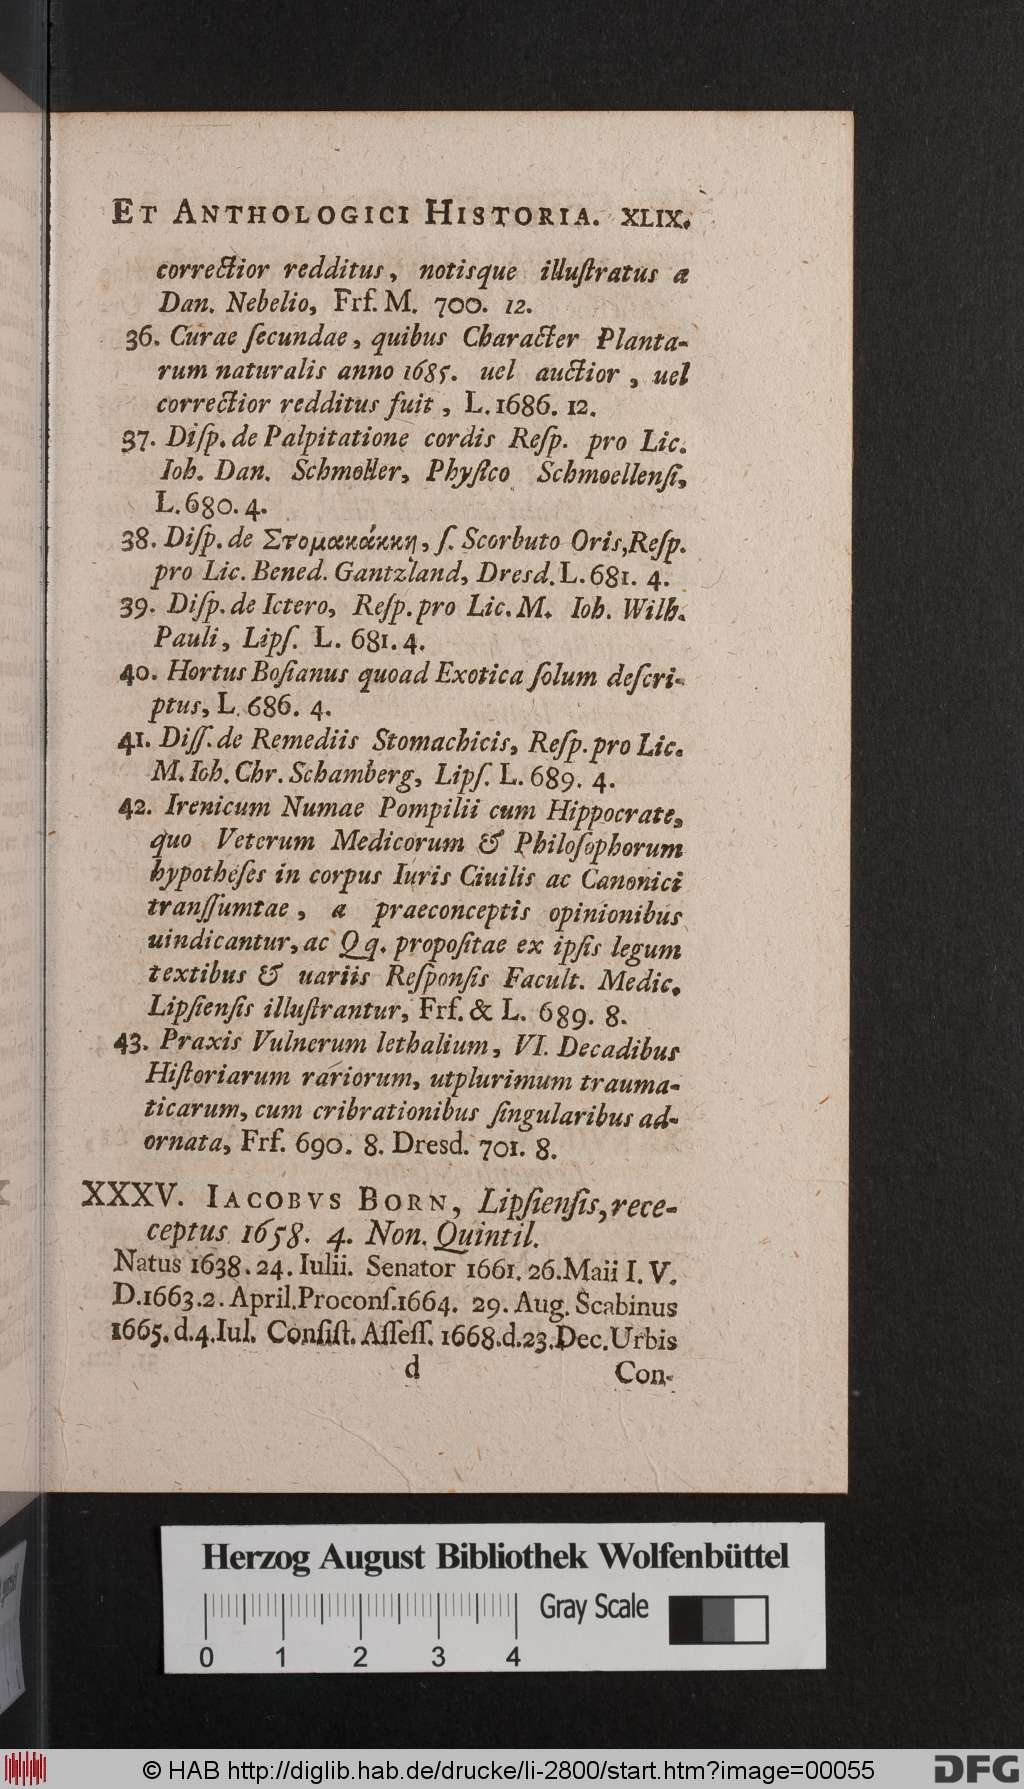 ET ANTHOLOGICI HISTORIA. XLIX.
correctior redditus, notisque illuſtratus a
Dan. Nebelio, Frf. M. 700. 12.
36. Curae ſecundae, quibus Character Planta-
rum naturalis anno 1685. uel auctior, uel
correctior redditus fuit, L. 1686. 12.
37. Diſp. de Palpitatione cordis Reſp. pro Lic.
Ioh. Dan. Schmoller, Phyſico Schmoellenſi,
L. 680. 4.
38. Diſp. de Στομακάκκη, ſ. Scorbuto Oris, Reſp.
pro Lic. Bened. Gantzland, Dresd. L. 681. 4.
39. Diſp. de Ictero, Reſp. pro Lic. M. Ioh. Wilh.
Pauli, Lipſ. L. 681. 4.
40. Hortus Boſianus quoad Exotica ſolum deſcri-
ptus, L. 686. 4.
41. Diſſ. de Remediis Stomachicis, Reſp. pro Lic.
M. Ioh. Chr. Schamberg, Lipſ. L. 689. 4.
42. Irenicum Numae Pompilii cum Hippocrate,
quo Veterum Medicorum & Philoſophorum
hypotheſes in corpus Iuris Ciuilis ac Canonici
tranſſumtae, a praeconceptis opinionibus
uindicantur, ac Qq. propoſitae ex ipſis legum
textibus & uariis Reſponſis Facult. Medic.
Lipſienſis illuſtrantur, Frf. & L. 689. 8.
43. Praxis Vulnerum lethalium, VI. Decadibus
Hiſtoriarum rariorum, utplurimum trauma-
ticarum, cum cribrationibus ſingularibus ad-
ornata, Frf. 690. 8. Dresd. 701. 8.
XXXV. IACOBVS BORN, Lipſienſis, rece-
ceptus 1658. 4. Non. Quintil.
Natus 1638. 24. Iulii. Senator 1661. 26. Maii I. V.
D. 1663. 2. April. Proconſ. 1664. 29. Aug. Scabinus
1665. d. 4. Iul. Conſiſt. Aſſeſſ. 1668. d. 23. Dec. Urbis
d Con-
Herzog August Bibliothek Wolfenbüttel
Gray Scale
0 1 2 3 4
© HAB http://diglib.hab.de/drucke/li-2800/start.htm?image=00055
DFG